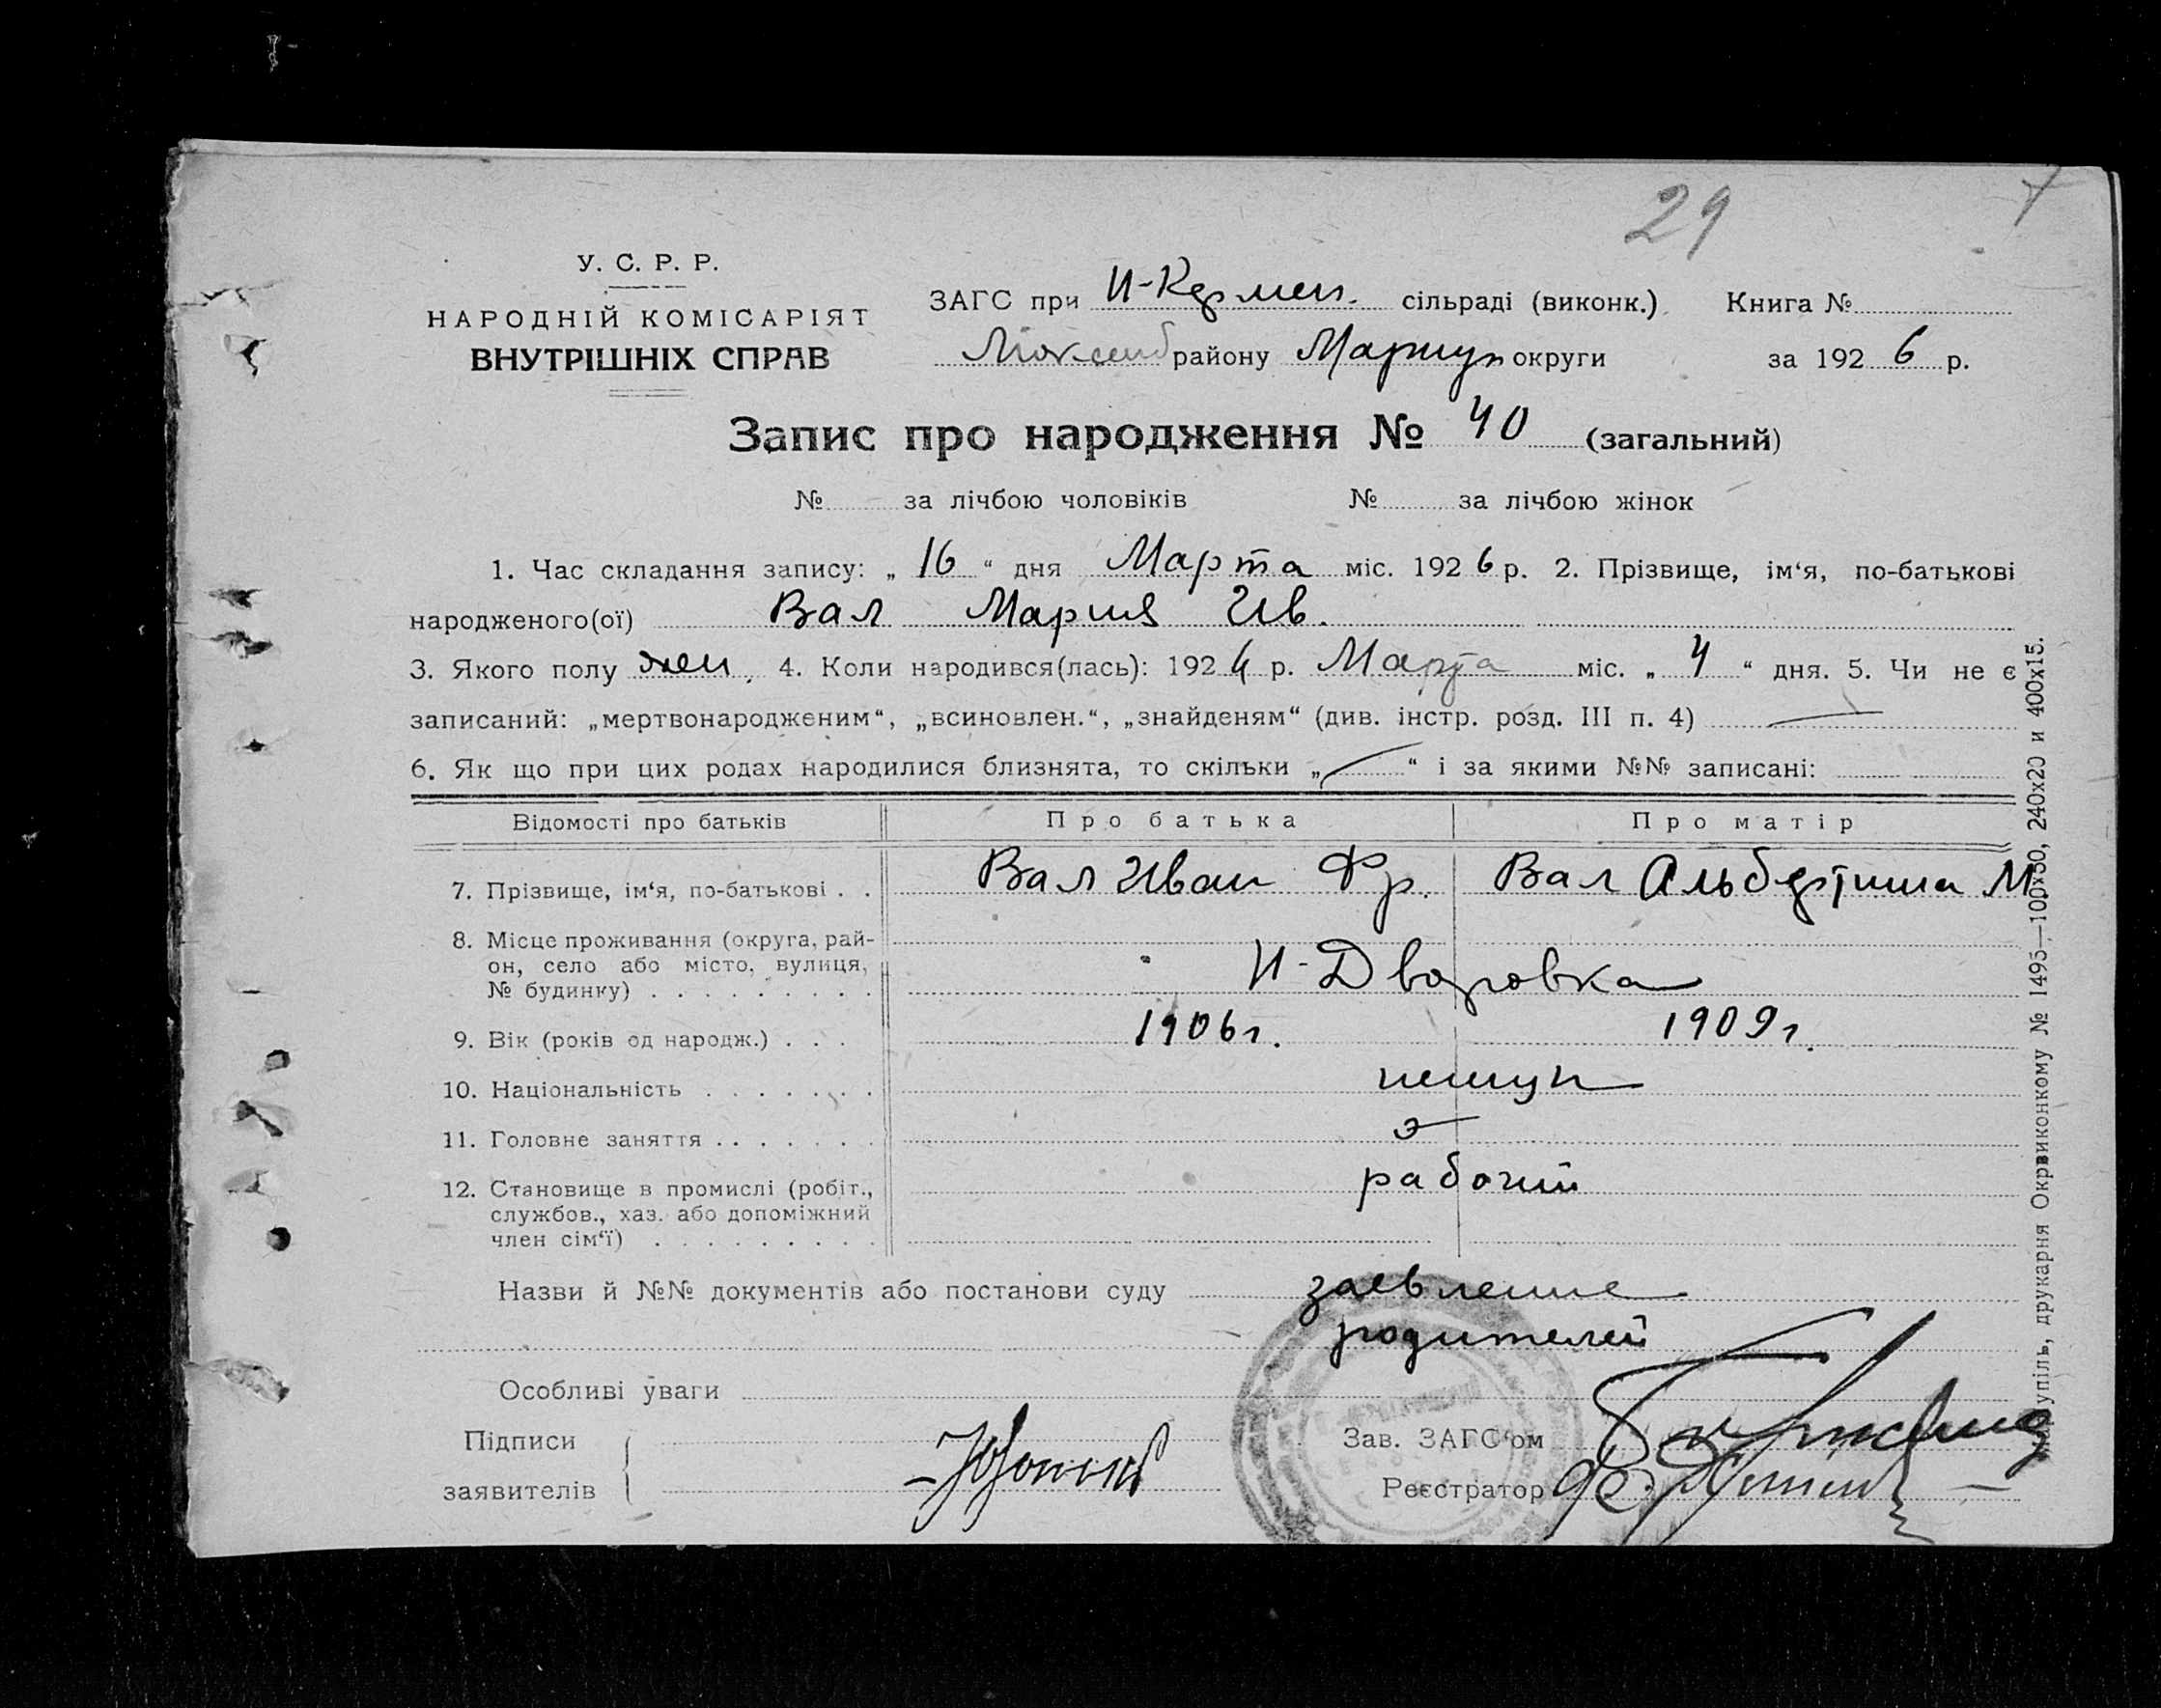 29
У. С. Р. Р.
НАРОДНІЙ КОМІСАРІЯТ
ВНУТРІШНІХ СПРАВ
ЗАГС при И-Кермен. сільраді (виконк.) Книга №
району Мариуп округи за 1926 р.
Запис про народження № 40 (загальний)
№ за лічбою чоловіків № за лічбою жінок
1. Час складання запису: „16“ дня Марта міс. 1926 р. 2. Прізвище, ім‘я, по-батькові
народженого(ої) Вал Мария Ив.
3. Якого полу жен. 4. Коли народився(лась): 1924 р. Марта міс. „4“ дня. 5. Чи не є
записаний: „мертвонародженим“, „всиновлен.“, „знайденям“ (див. інстр. розд. III п. 4) —
6. Як що при цих родах народилися близнята, то скільки „—“ і за якими №№ записані:
Відомості про батьків Про батька Про матір
7. Прізвище, ім‘я, по-батькові . . Вал Иван Фр. Вал Альбертина М
8. Місце проживання (округа, рай-
он, село або місто, вулиця,
№ будинку) . . . . . . . . . И-Дворовка
9. Вік (років од народж.) . . . 1906 г. 1909 г.
10. Національність . . . . . . . немцы
11. Головне заняття . . . . . . .
12. Становище в промислі (робіт., рабочий
службов., хаз. або допоміжний
член сім‘ї) . . . . . . . . .
Назви й №№ документів або постанови суду заевление
родителей
Особливі уваги
Підписи
заявителів
Зав. ЗАГС‘ом
Реєстратор
Маріупіль, друкарня Окрвиконкому № 1495—100×50, 240х20 и 400х15.